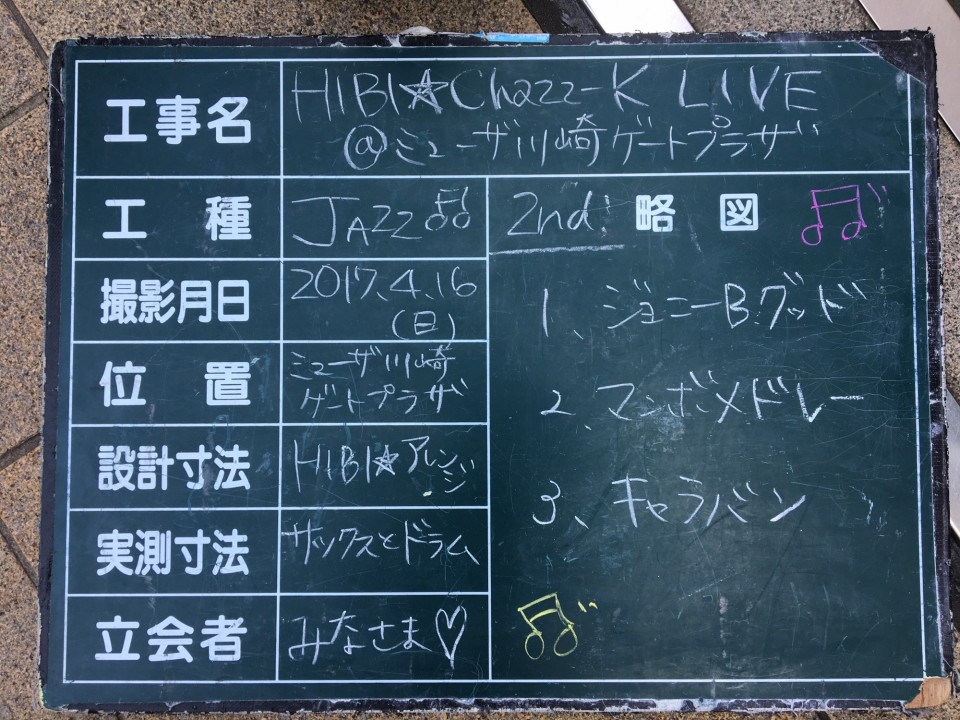 工事名
HIBI☆Chazz-K LIVE
@ミューザ川崎ゲートプラザ
工種
JAZZ
撮影月日
2017.4.16
(日)
位置
ミューザ川崎
ゲートプラザ
設計寸法
HIBI☆アレンジ
実測寸法
サックスとドラム
立会者
みなさま♡
2nd. 略図
1、ジョニーB.グッド
2、マンボメドレー
3、キャラバン